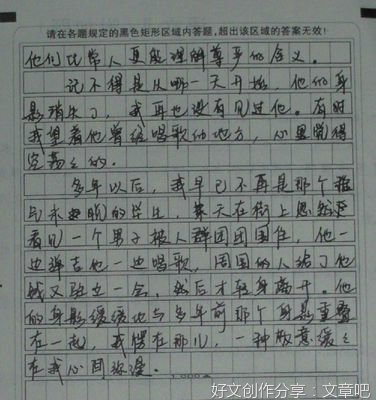 请在各题规定的黑色矩形区域内答题,超出该区域的答案无效!
他们比常人更能理解尊严的含义。
记不得是从哪一天开始,他的身
影消失了,我再也没有见过他。有时
我望着他曾经唱歌的地方,心里觉得
空荡荡的。
多年以后,我早已不再是那个
的学生,某天在街上忽然
看见一个男子被人群团团围住,他一
边弹吉他一边唱歌,周围的人给了他
钱又驻立一会,然后才转身离开。他
的身影缓缓地与多年前那个身影重叠
在一起,我愣在那儿,一种敬意缓缓
在我心间弥漫。
好文创作分享:文章吧